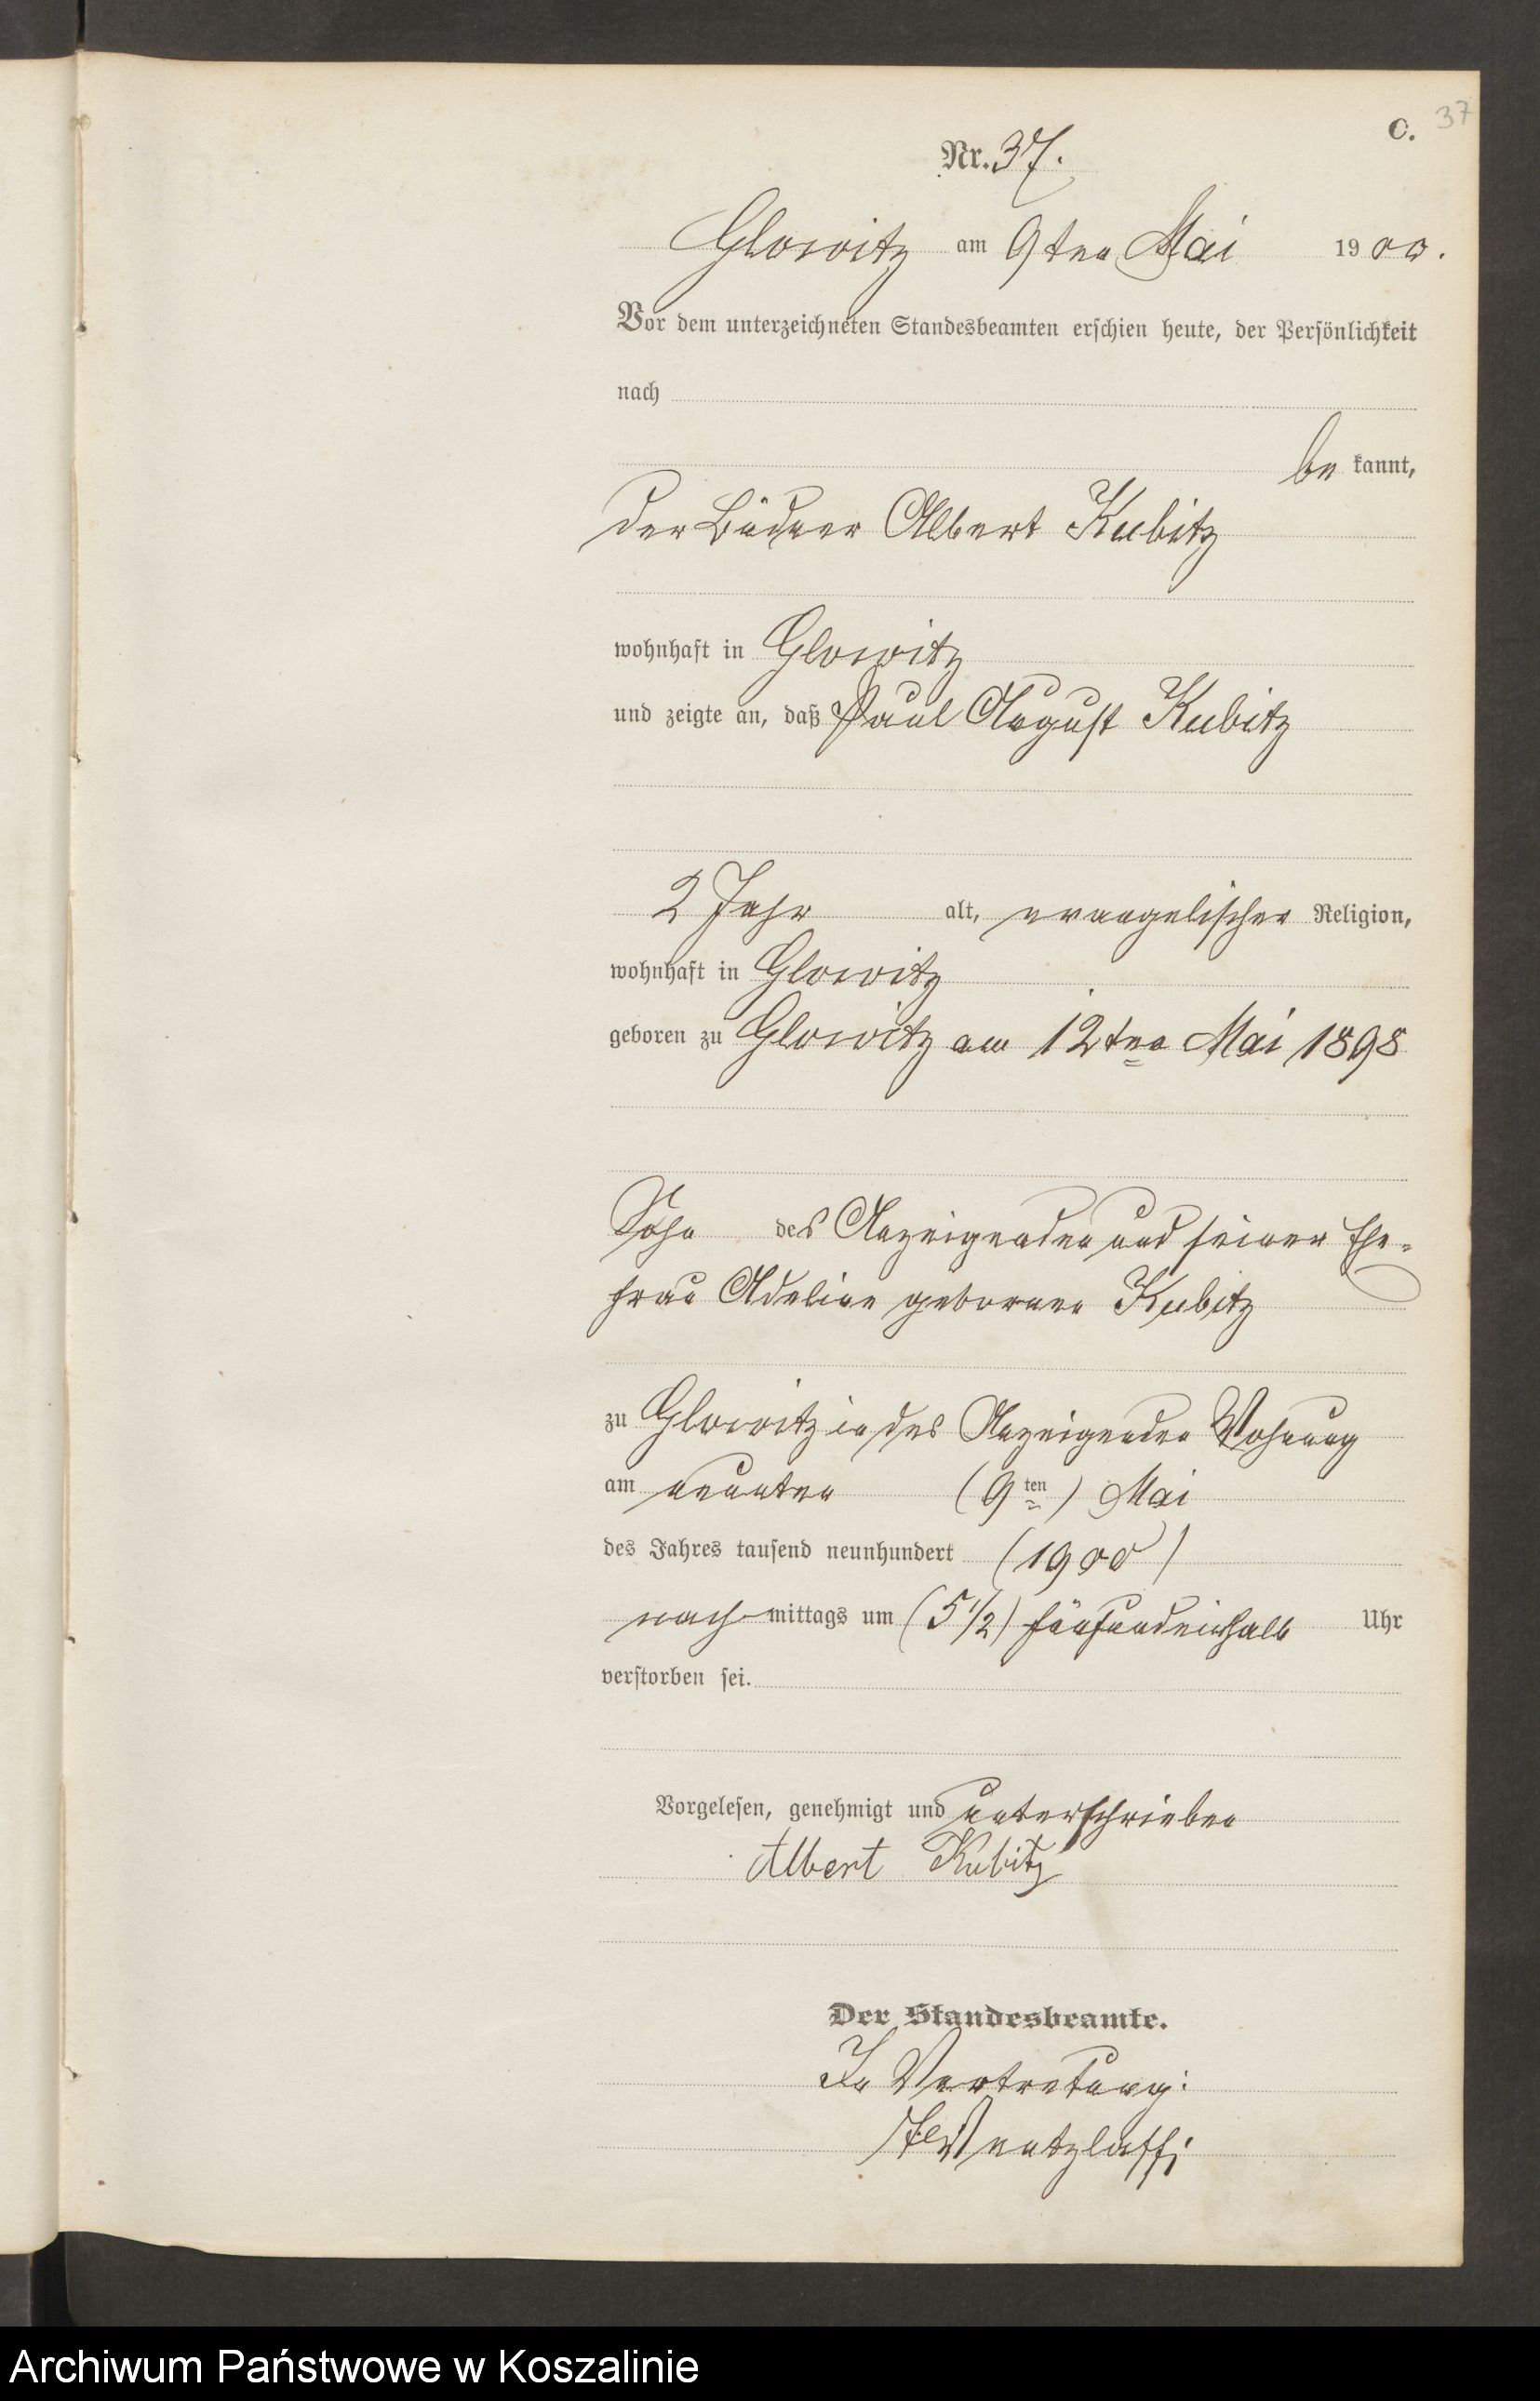 C. 37
Nr. 37.
Glowitz am 9ten Mai 1900.
Vor dem unterzeichneten Standesbeamten erschien heute, der Persönlichkeit
nach
be kannt,
der Büdner Albert Kubitz
wohnhaft in Glowitz
und zeigte an, daß Paul August Kubitz
2 Jahr alt, evangelischer Religion,
wohnhaft in Glowitz
geboren zu Glowitz am 12ten Mai 1898
Sohn des Anzeigenden und seiner Ehe-
frau Adeline geborenen Kubitz
zu Glowitz in des Anzeigenden Wohnung
am neunten (9ten) Mai
des Jahres tausend neunhundert (1900)
nach mittags um (5 1/2) fünfundeinhalb Uhr
verstorben sei.
Vorgelesen, genehmigt und unterschrieben
Albert Kubitz
Der Standesbeamte.
In Vertretung:
Wentzlaff
Archiwum Państwowe w Koszalinie